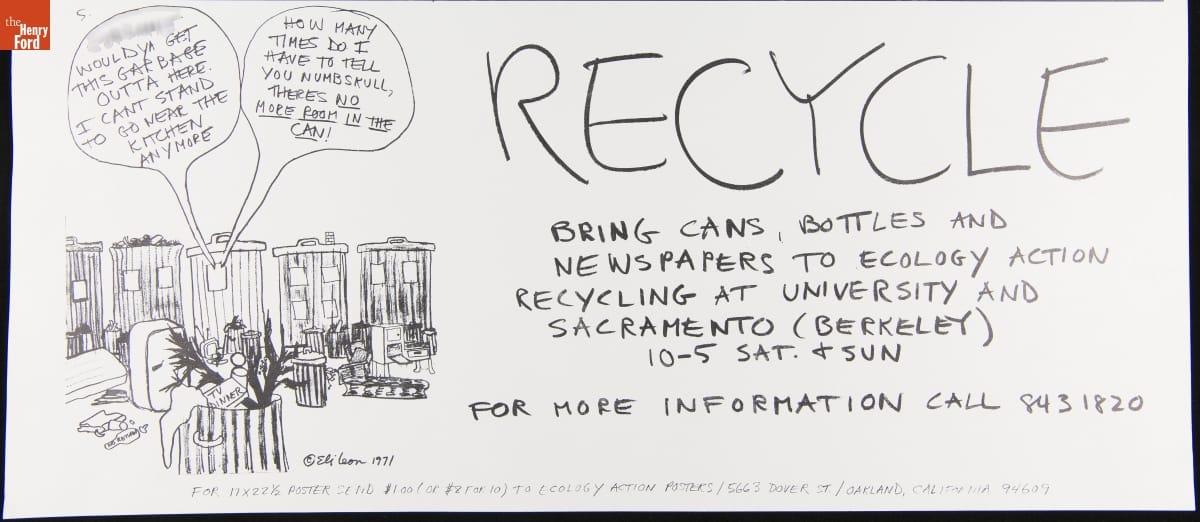 the
Henry
Ford
S.
WOULDYA GET
THIS GARBAGE
OUTTA HERE.
I CANT STAND
TO GO NEAR THE
KITCHEN
ANYMORE
HOW MANY
TIMES DO I
HAVE TO TELL
YOU NUMBSKULL,
THERES NO
MORE ROOM IN THE
CAN!
TV
DINNER
©Eli Leon 1971
RECYCLE
BRING CANS, BOTTLES AND
NEWSPAPERS TO ECOLOGY ACTION
RECYCLING AT UNIVERSITY AND
SACRAMENTO (BERKELEY)
10-5 SAT. & SUN
FOR MORE INFORMATION CALL 843 1820
FOR 17X22½ POSTER SEND $1.00 (OR $2 FOR 10) TO ECOLOGY ACTION POSTERS / 5663 DOVER ST. / OAKLAND, CALIFORNIA 94609